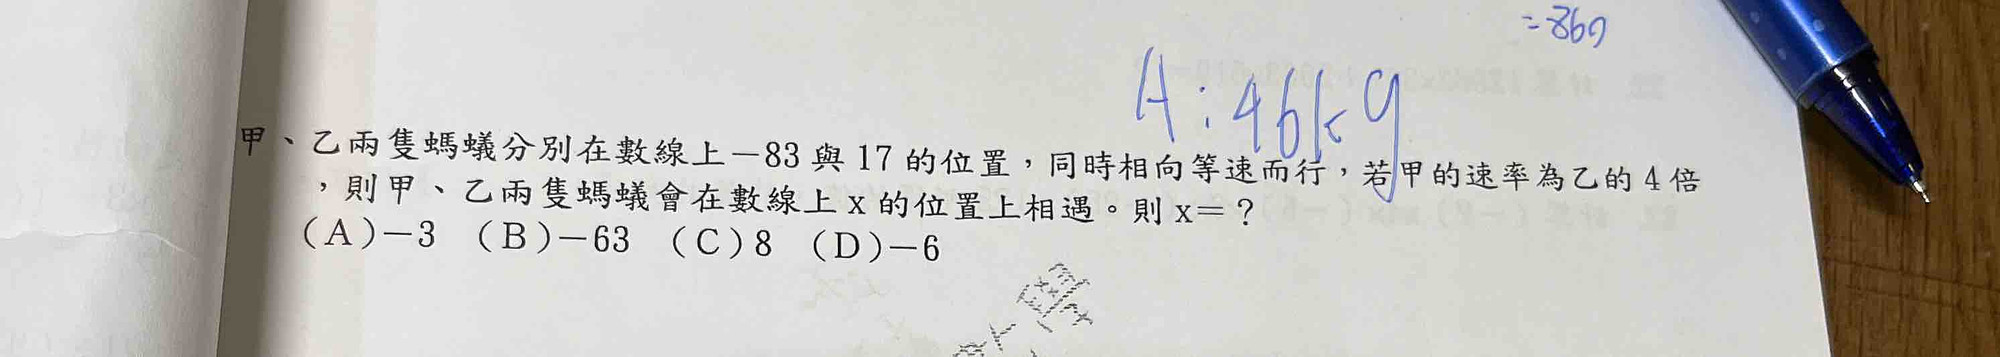 =860
A:46kg
甲、乙兩隻螞蟻分別在數線上－83 與 17 的位置，同時相向等速而行，若甲的速率為乙的 4 倍
，則甲、乙兩隻螞蟻會在數線上 x 的位置上相遇。則 x＝？
（A）－3　（B）－63　（C）8　（D）－6